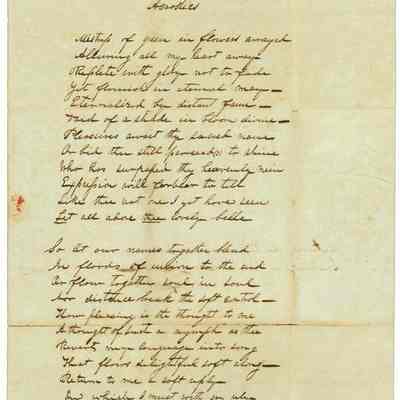 Acrostics
Mistress of green in flowers arrayed
Alluring all my heart away
Replete with glory not to fade
Yet flourish in eternal may—
Eternalized by distant fame—
Void of a shade in bloom divine—
Pleasures await thy sacred name
Or bid thee still proceed to shine
Who has surpassed thy heavenly mein
Expression will forbear to tell
Like thee not one I yet have seen
Let all adore thee lovely belle
So let our names together blend
In floods of union to the end
Or flow together soul in soul
Nor distance break the soft control—
How pleasing is the thought to me
A thought of such a nymph as thee
Reverts my language into song
That flows delightful soft along—
Return to me a soft reply
On which I must with